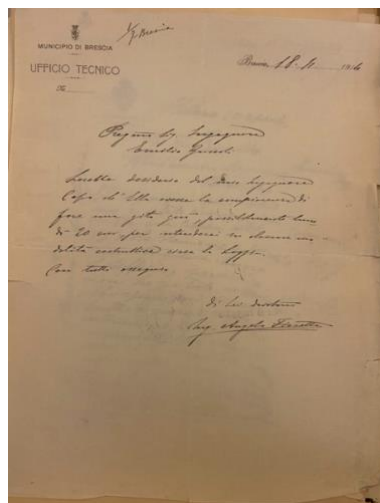 Brescia
MUNICIPIO DI BRESCIA
UFFICIO TECNICO
N.
Brescia, 18.11 191
Pregmo Sig. Ingegnere
Emilio
desiderio del Ingegnere
Capo ch'Ella avesse la compiacenza di
fare una gita qui, possibilmente lune
dì 20 corr. per intenderci su alcune mo
dalità costruttive
Con tutto ossequio
di Lei devotmo
Ing. Angelo